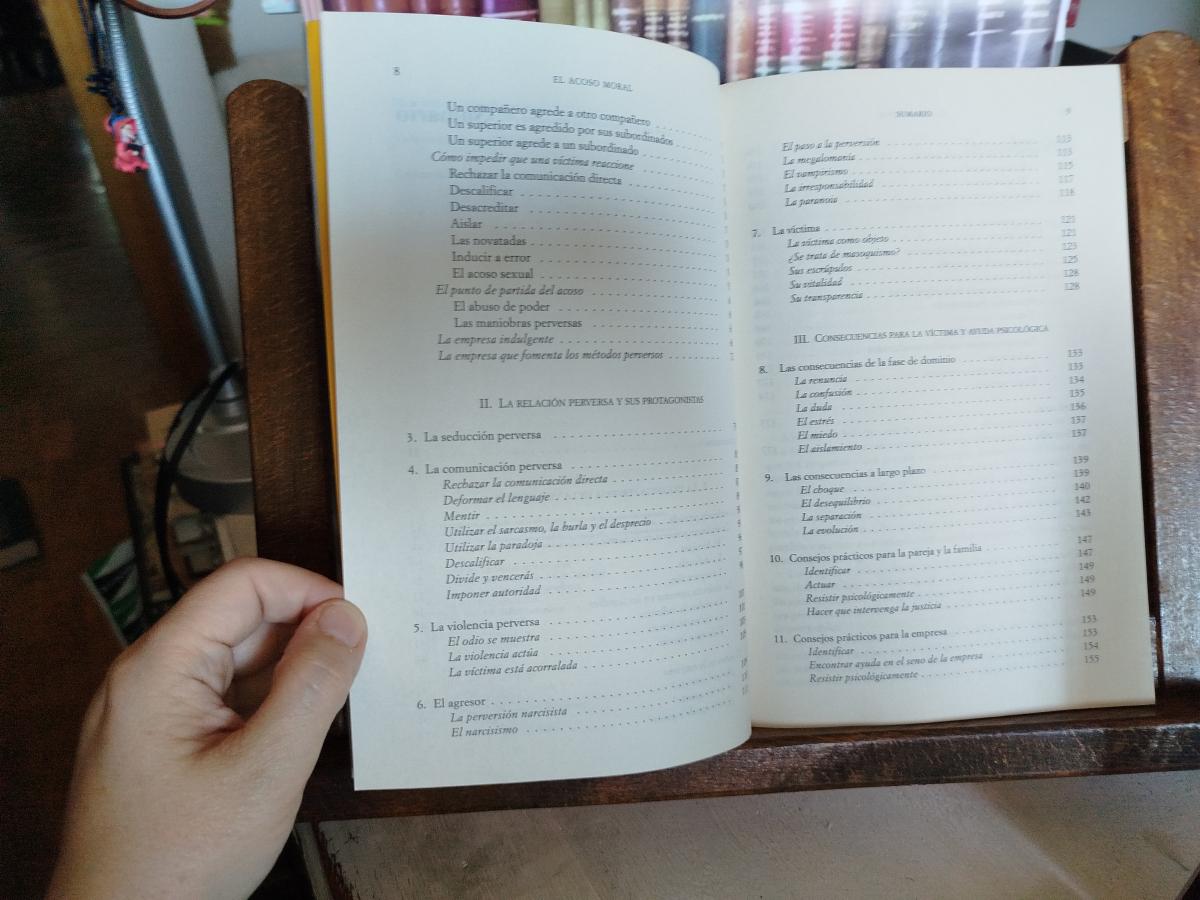 8
EL ACOSO MORAL
Un compañero agrede a otro compañero
Un superior es agredido por sus subordinados
Un superior agrede a un subordinado
Cómo impedir que una víctima reaccione
Rechazar la comunicación directa
Descalificar
Desacreditar
Aislar
Las novatadas
Inducir a error
El acoso sexual
El punto de partida del acoso
El abuso de poder
Las maniobras perversas
La empresa indulgente
La empresa que fomenta los métodos perversos
II. LA RELACIÓN PERVERSA Y SUS PROTAGONISTAS
3. La seducción perversa
4. La comunicación perversa
Rechazar la comunicación directa
Deformar el lenguaje
Mentir
Utilizar el sarcasmo, la burla y el desprecio
Utilizar la paradoja
Descalificar
Divide y vencerás
Imponer autoridad
5. La violencia perversa
El odio se muestra
La violencia actúa
La víctima está acorralada
6. El agresor
La perversión narcisista
El narcisismo
SUMARIO
9
El paso a la perversión 113
La megalomanía 113
El vampirismo 115
La irresponsabilidad 117
La paranoia 118
7. La víctima 121
La víctima como objeto 121
¿Se trata de masoquismo? 123
Sus escrúpulos 125
Su vitalidad 128
Su transparencia 128
III. CONSECUENCIAS PARA LA VÍCTIMA Y AYUDA PSICOLÓGICA
8. Las consecuencias de la fase de dominio 133
La renuncia 133
La confusión 134
La duda 135
El estrés 136
El miedo 137
El aislamiento 137
9. Las consecuencias a largo plazo 139
El choque 139
El desequilibrio 140
La separación 142
La evolución 143
10. Consejos prácticos para la pareja y la familia 147
Identificar 147
Actuar 149
Resistir psicológicamente 149
Hacer que intervenga la justicia 149
11. Consejos prácticos para la empresa 153
Identificar 153
Encontrar ayuda en el seno de la empresa 154
Resistir psicológicamente 155